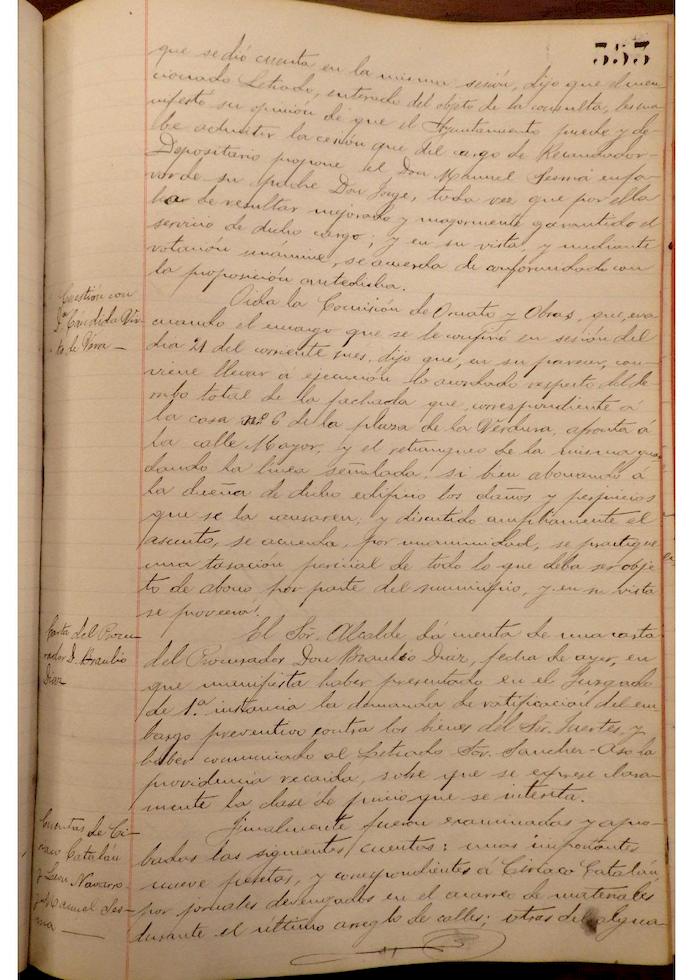 353
que se dió cuenta en la misma sesión, dijo que el men-
cionado Letrado, enterado del objeto de la consulta, les ma-
nifestó su opinión de que el Ayuntamiento puede y de-
be admitir la cesión que del cargo de Recaudador-
Depositario propone el Don Manuel Sesma en fa-
vor de su padre Don Jorge, toda vez que por ella
ha de resultar mejorado y mayormente garantido el
servicio de dicho cargo; y en su vista, y mediante
votación unánime, se acuerda de conformidad con
la proposición antedicha.
Cuestión con
Dª Cándida Vir-
to de Vera —
Oida la Comisión de Ornato y Obras, que, eva-
cuando el encargo que se le confirió en sesión del
dia 21 del corriente mes, dijo que, en su parecer, con-
viene llevar á ejecución lo acordado respecto del de-
rribo total de la fachada que, correspondiente á
la casa nº 6 de la plaza de la Verdura, apronta á
la calle Mayor, y el retranqueo de la misma guar-
dando la linea señalada, si bien abonando á
la dueña de dicho edificio los daños y perjuicios
que se la causaren; y discutido ampliamente el
asunto, se acuerda, por unanimidad, se practique
una tasación pericial de todo lo que deba ser obje-
to de abono por parte del municipio, y en su vista
se proveerá.
Carta del Procu-
rador D. Braulio
Diaz
El Sor. Alcalde, dá cuenta de una carta
del Procurador Don Braulio Diaz, fecha de ayer, en
que manifiesta haber presentado en el Juzgado
de 1.ª instancia la demanda de ratificación del em-
bargo preventivo contra los bienes del Sor. Fuertes, y
haber comunicado al Letrado Sor. Sanchez-Aso la
providencia recaida, sobre que se exprese clara-
mente la clase de juicio que se intenta.
Cuentas de Ci-
riaco Catalán
y Leon Navarro
y Manuel Ses-
ma —
Finalmente fueron examinadas y apro-
badas las siguientes cuentas: unas importantes
nueve pesetas, y correspondientes á Ciriaco Catalán,
por jornales devengados en el acarreo de materiales
durante el último arreglo de calles; otras del algua-